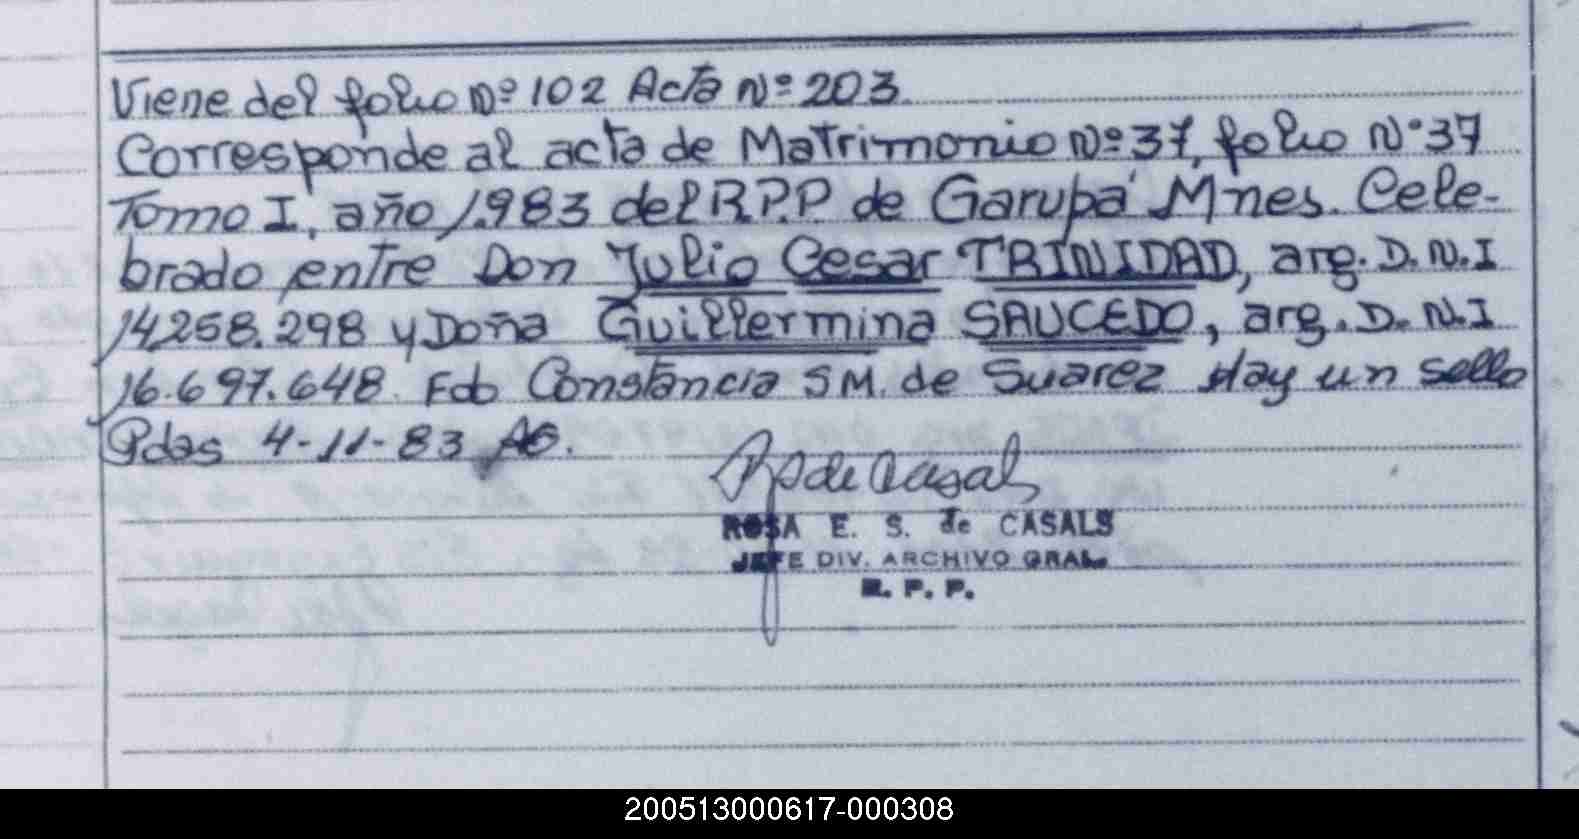 Viene del folio Nº 102 Acta Nº 203.
Corresponde al acta de Matrimonio Nº 37, folio Nº 37
Tomo I, año 1.983 del R.P.P de Garupá Mnes. Cele-
brado entre Don Julio Cesar TRINIDAD, arg. D.N.I
14.258.298 y Doña Guillermina SAUCEDO, arg. D.N.I
16.697.648. Fdo Constancia S M. de Suarez Hay un sello
Pdas 4-11-83
R S de Casals
ROSA E. S. de CASALS
JEFE DIV. ARCHIVO GRAL.
R. P. P.
200513000617-000308